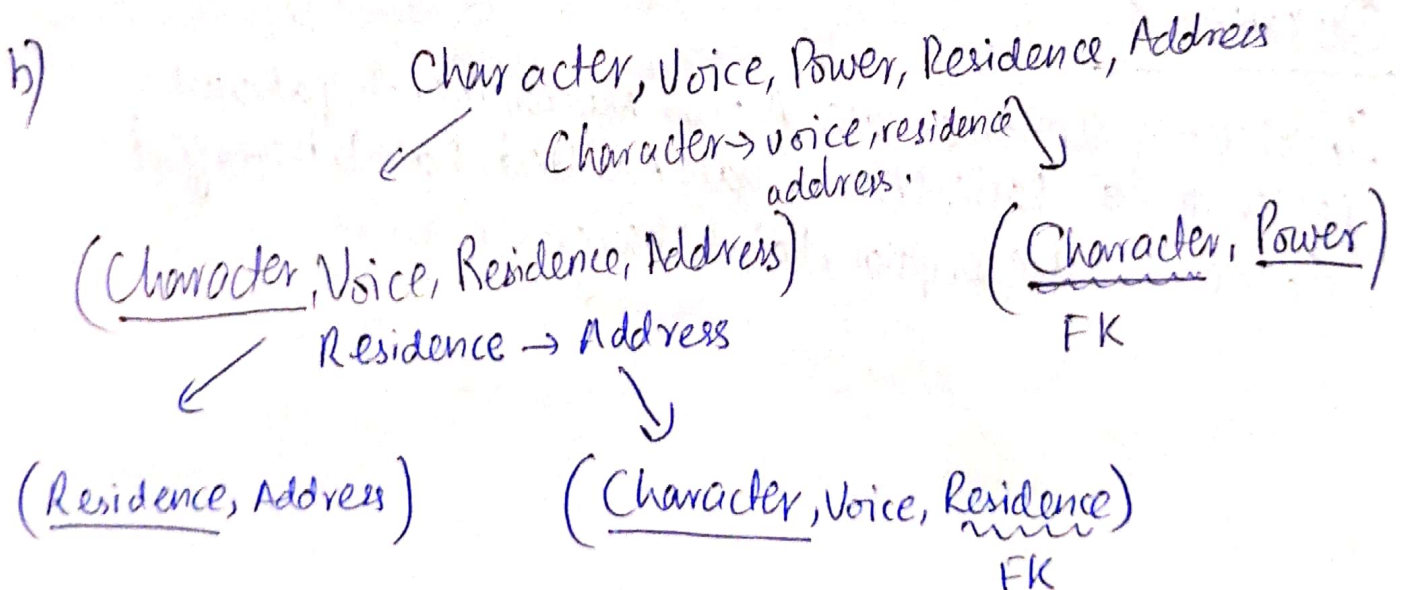 b)
Character, Voice, Power, Residence, Address
Character → voice, residence
address.
(Character, Voice, Residence, Address)
(Character, Power)
FK
Residence → Address
(Residence, Address)
(Character, Voice, Residence)
FK